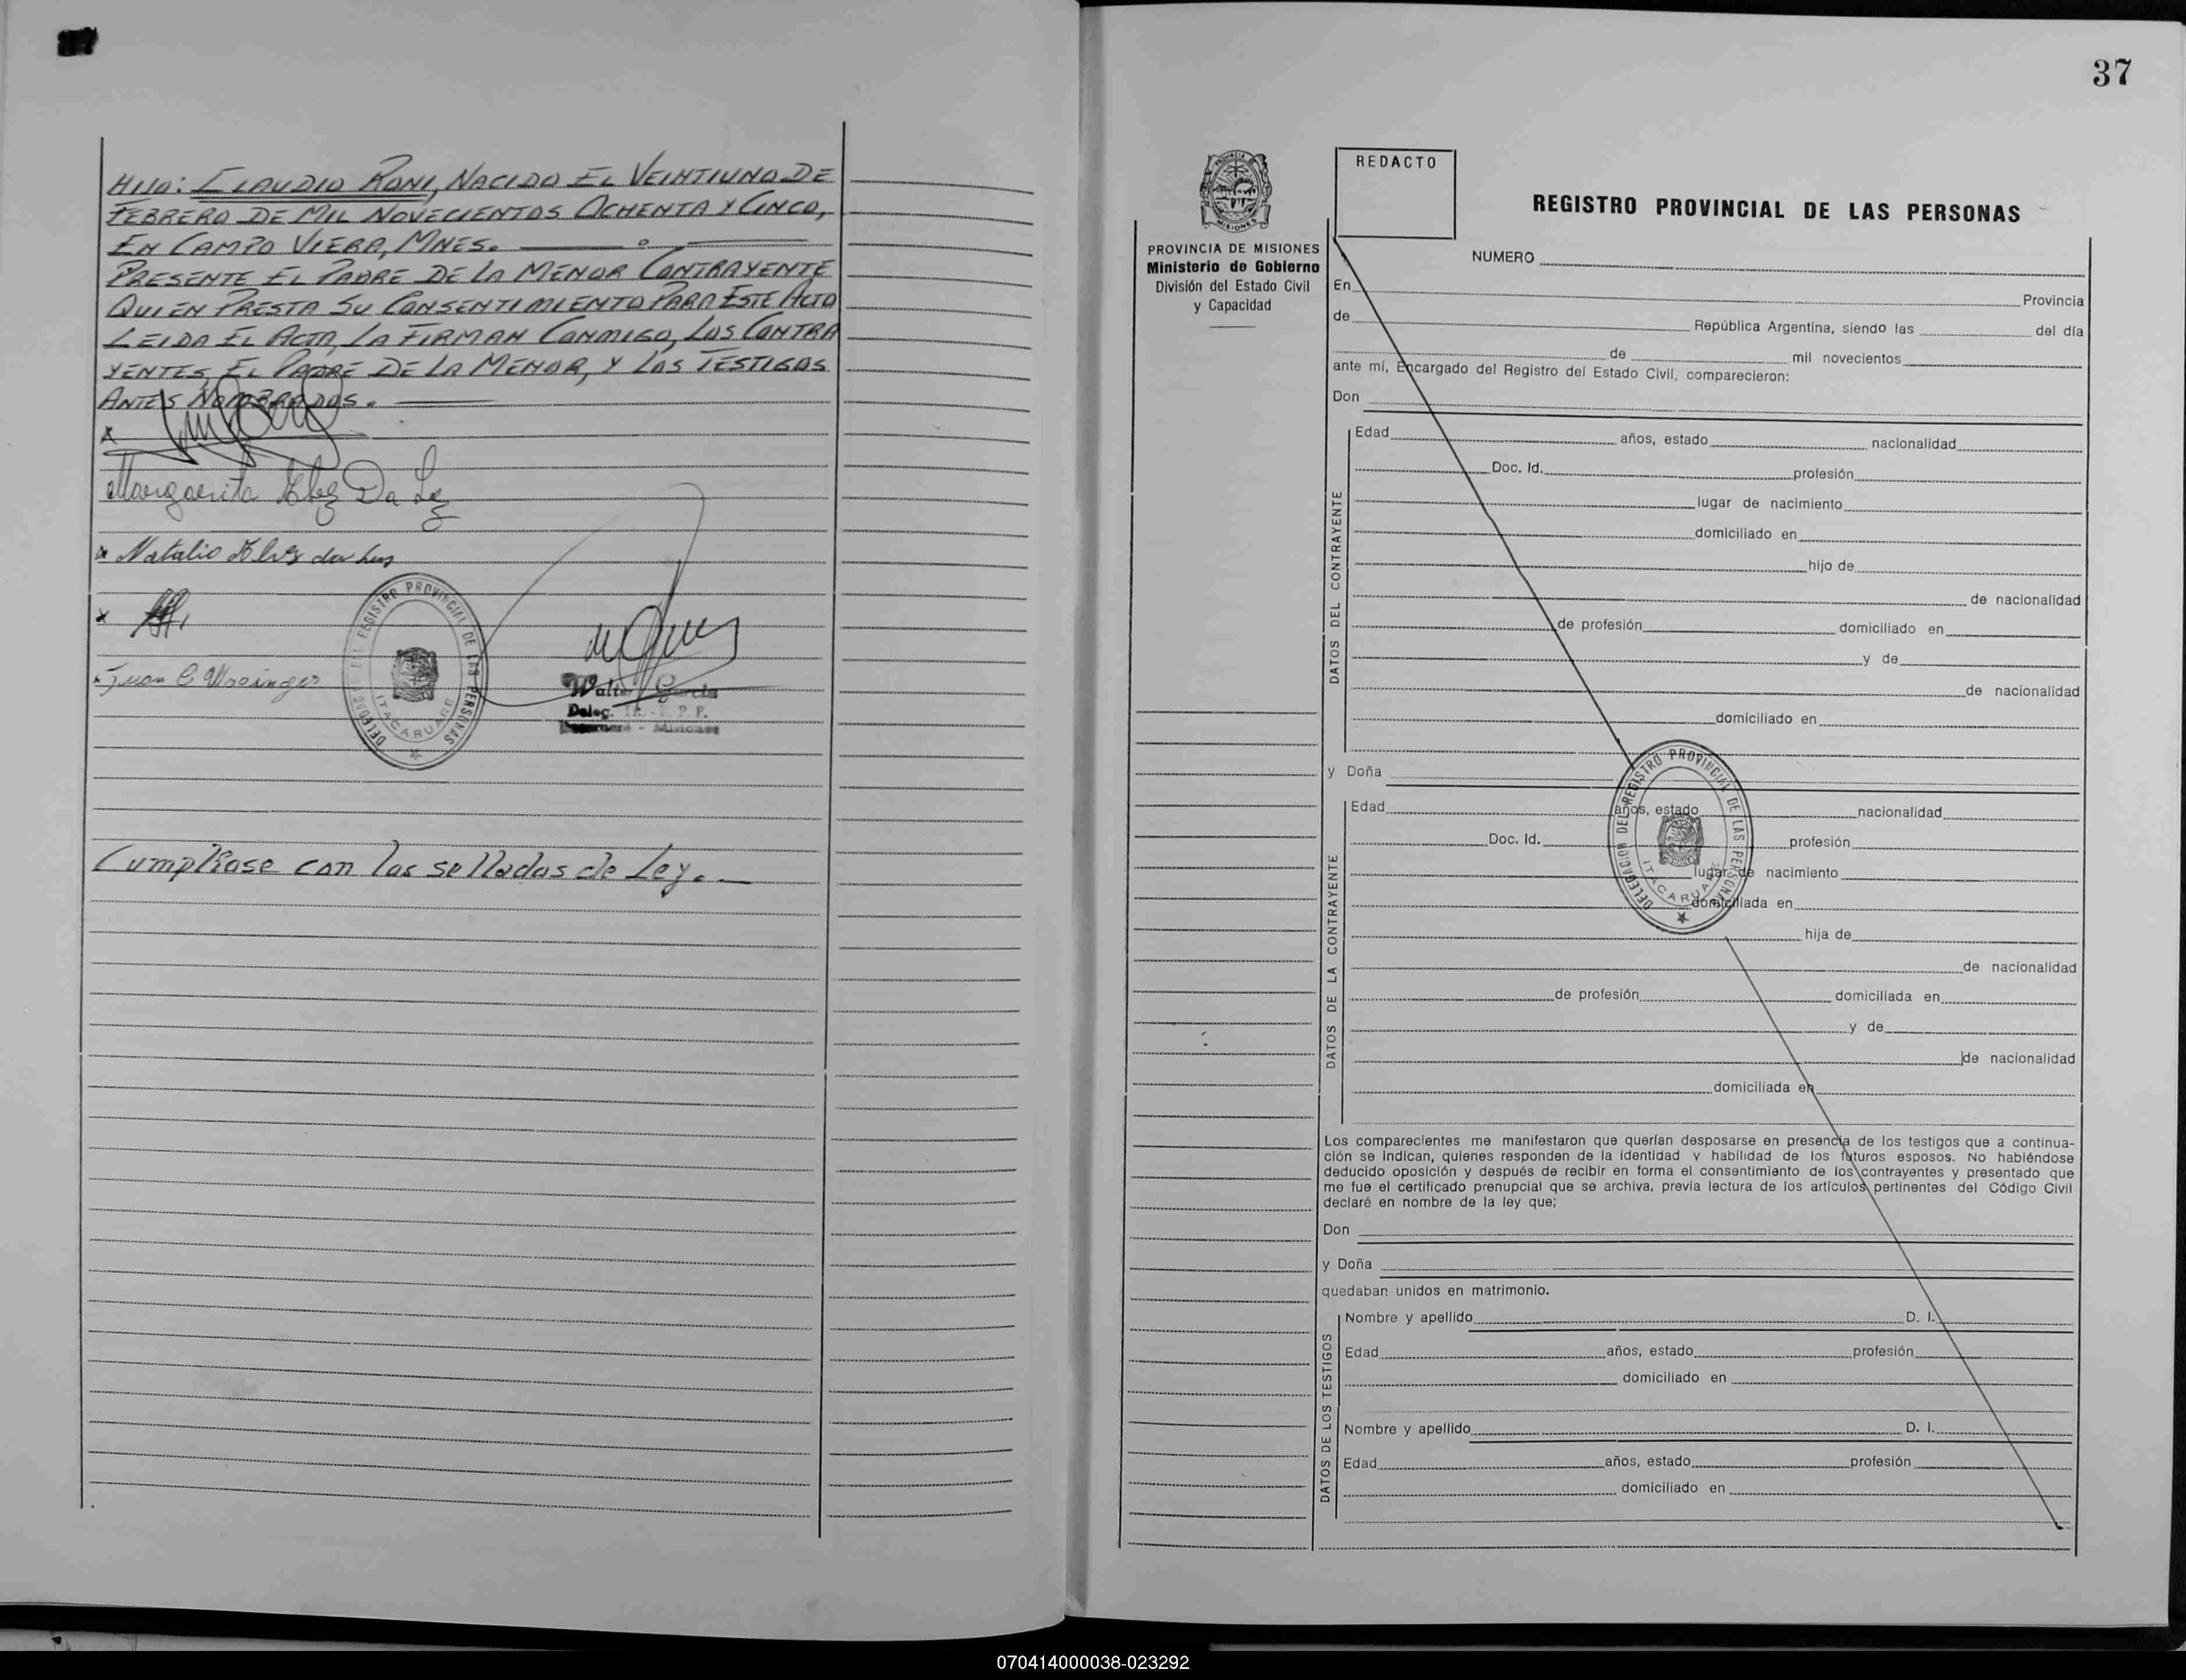 HIJO: CLAUDIO RONI, NACIDO EL VEINTIUNO DE
FEBRERO DE MIL NOVECIENTOS OCHENTA Y CINCO,
EN CAMPO VIERA, MNES.
PRESENTE EL PADRE DE LA MENOR CONTRAYENTE
QUIEN PRESTA SU CONSENTIMIENTO PARA ESTE ACTO
LEIDA EL ACTA, LA FIRMAN CONMIGO, LOS CONTRA
YENTES, EL PADRE DE LA MENOR, Y LOS TESTIGOS
ANTES NOMBRADOS.
Margarita Alvez Da Luz
Natalio Alvez da Luz
Juan C
DELEGACION DEL REGISTRO PROVINCIAL DE LAS PERSONAS
ITACARUARE
Walter Garcia
Deleg. R. P. P.
Itacaruaré - Misiones
Cumplase con los sellados de Ley.
37
REDACTO
REGISTRO PROVINCIAL DE LAS PERSONAS
MISIONES
PROVINCIA DE MISIONES
Ministerio de Gobierno
División del Estado Civil
y Capacidad
NUMERO
En Provincia
de República Argentina, siendo las del día
de mil novecientos
ante mí, Encargado del Registro del Estado Civil, comparecieron:
Don
DATOS DEL CONTRAYENTE
Edad años, estado nacionalidad
Doc. Id. profesión
lugar de nacimiento
domiciliado en
hijo de
de nacionalidad
de profesión domiciliado en
y de
de nacionalidad
domiciliado en
y Doña
DATOS DE LA CONTRAYENTE
Edad años, estado nacionalidad
Doc. Id. profesión
lugar de nacimiento
domiciliada en
hija de
de nacionalidad
de profesión domiciliada en
y de
de nacionalidad
domiciliada en
DELEGACION DEL REGISTRO PROVINCIAL DE LAS PERSONAS
ITACARUARE
Los comparecientes me manifestaron que querían desposarse en presencia de los testigos que a continua-
ción se indican, quienes responden de la identidad y habilidad de los futuros esposos. No habiéndose
deducido oposición y después de recibir en forma el consentimiento de los contrayentes y presentado que
me fue el certificado prenupcial que se archiva, previa lectura de los artículos pertinentes del Código Civil
declaré en nombre de la ley que;
Don
y Doña
quedaban unidos en matrimonio.
DATOS DE LOS TESTIGOS
Nombre y apellido D. I.
Edad años, estado profesión
domiciliado en
Nombre y apellido D. I.
Edad años, estado profesión
domiciliado en
070414000038-023292